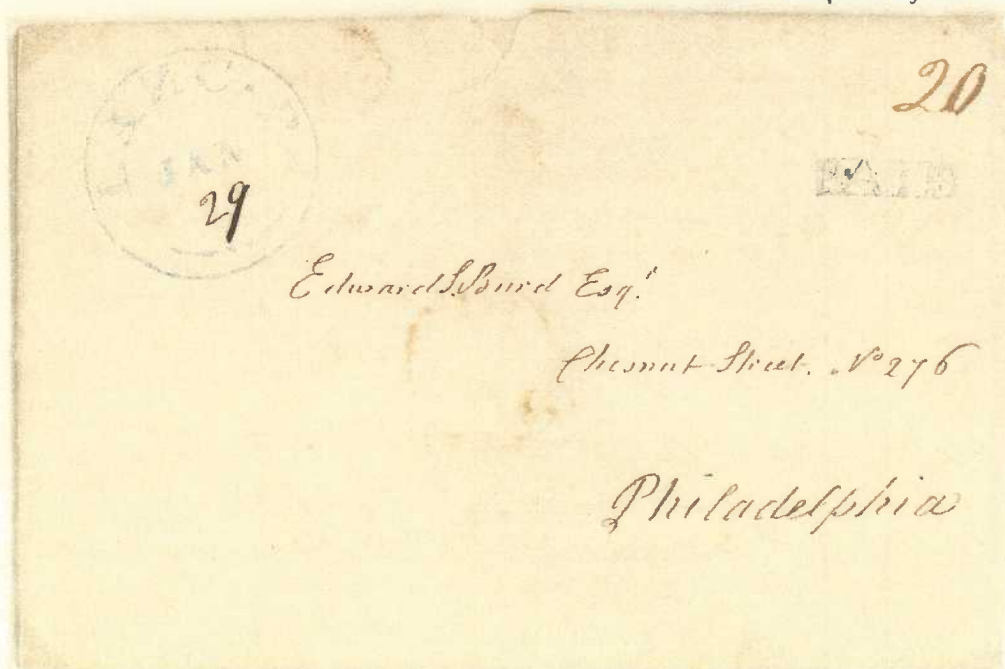 20
JAN
PAID
29
Edward S. Burd Esqr.
Chesnut Street. No 276
Philadelphia